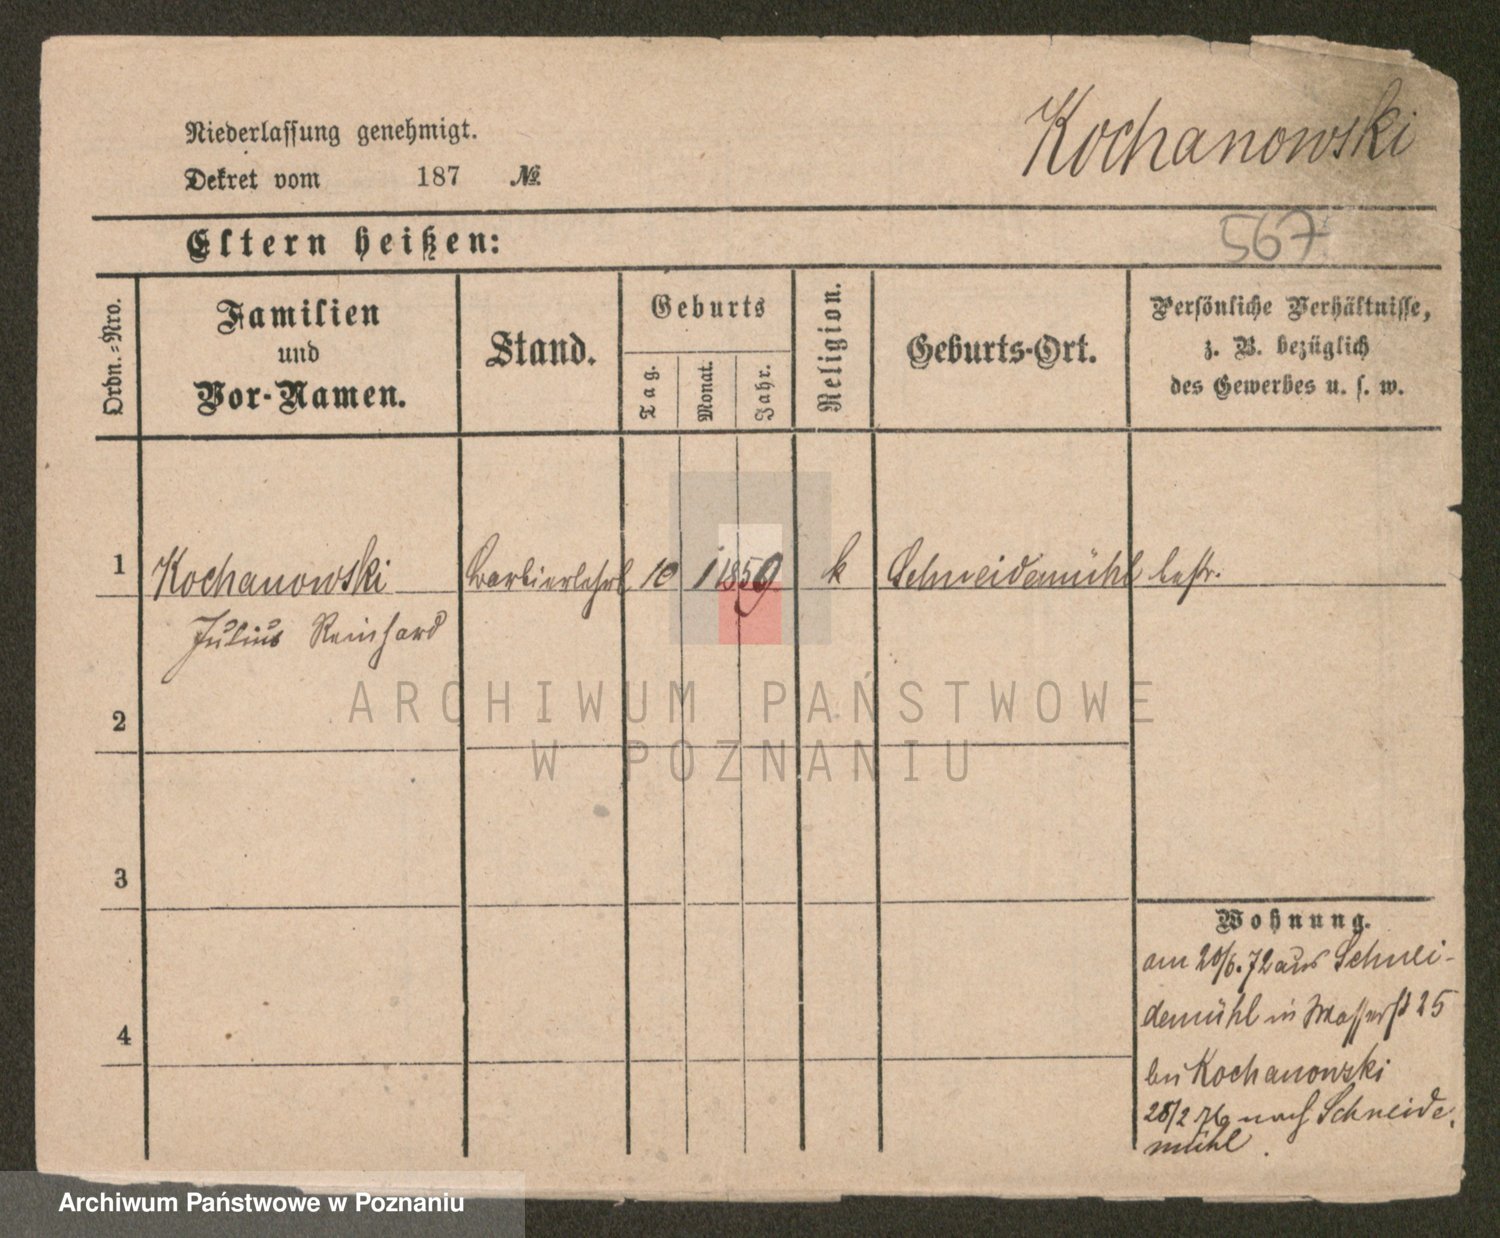 Kochanowski
Niederlassung genehmigt.
Dekret vom 187 №
567
Eltern heißen:
Ordn.-Nro.
Familien
und
Vor-Namen.
Stand.
Geburts
Tag.
Monat.
Jahr.
Religion.
Geburts-Ort.
Persönliche Verhältnisse,
z. B. bezüglich
des Gewerbes u. s. w.
1 Kochanowski Barbierlehrl 10 1 1859 k Schneidemühl bestr.
Julius Reinhard
2
3
4
Wohnung.
am 20/6.72 aus Schnei-
demühl in Wasserst 25
bei Kochanowski
28/2 76 nach Schneide,
mühl.
ARCHIWUM PAŃSTWOWE
W POZNANIU
Archiwum Państwowe w Poznaniu